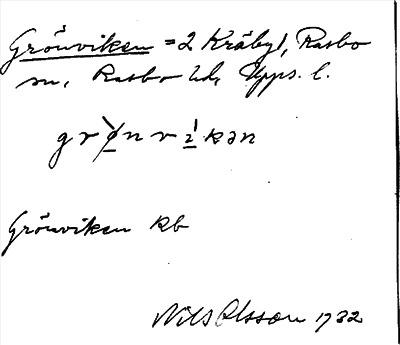 Grönviken = 2 Kräby 1, Rasbo
sn, Rasbo hd, Upps. l.
grø̀nvikən
Grönviken kb
Nils Olsson 1932